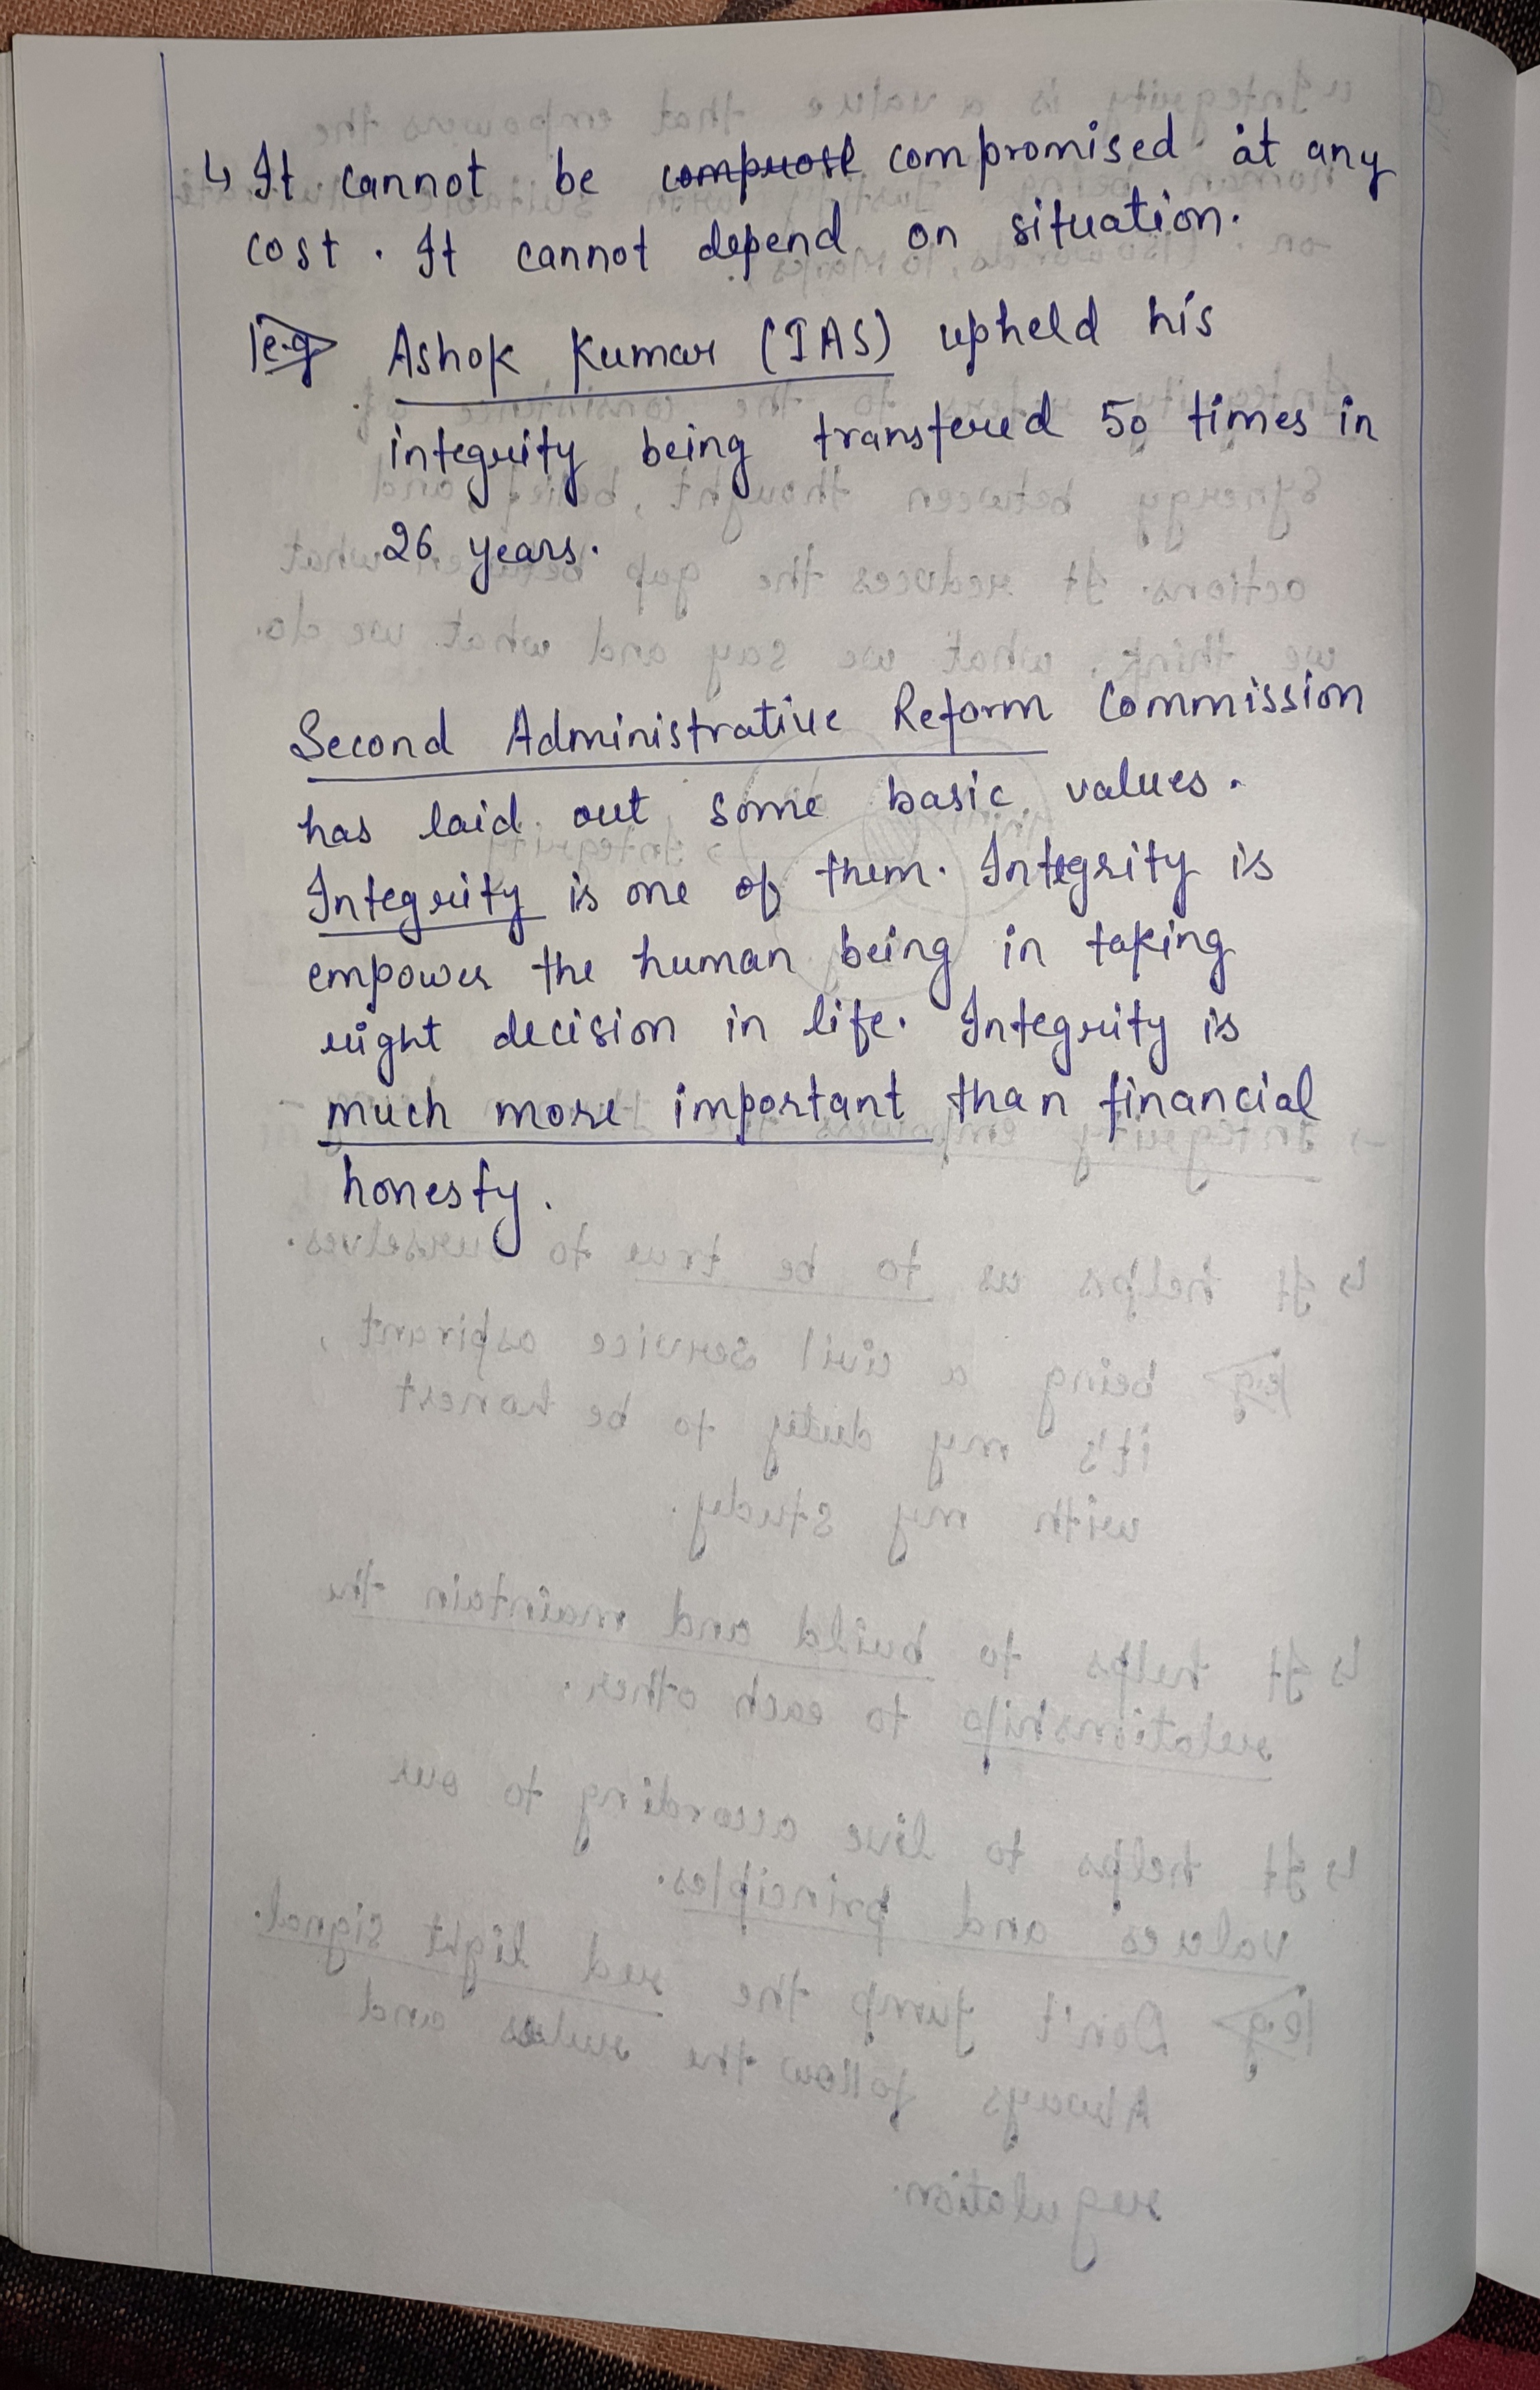 ↳ It cannot be compromised at any
cost. It cannot depend on situation.
e.g. Ashok Kumar (IAS) upheld his
integrity being transfered 50 times in
26 years.
Second Administrative Reform Commission
has laid out some basic values.
Integrity is one of them. Integrity is
empower the human being in taking
right decision in life. Integrity is
much more important than financial
honesty.